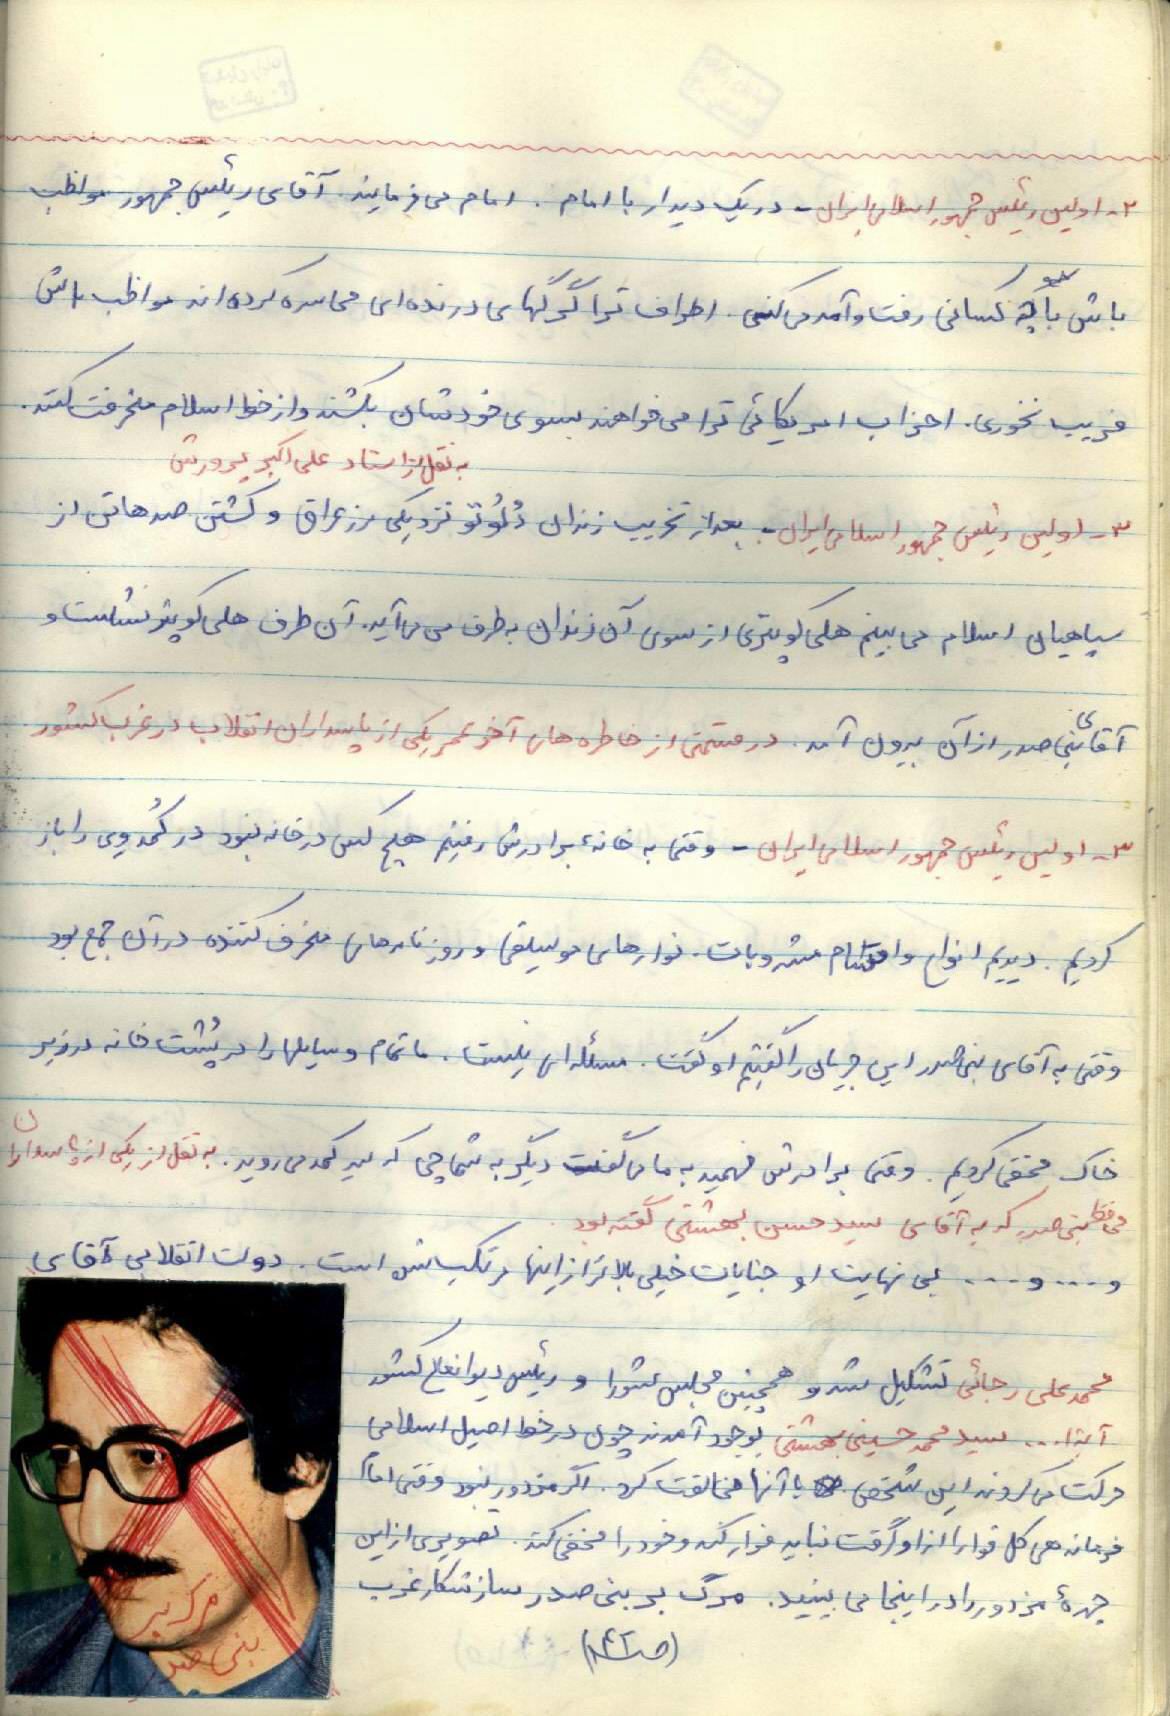 ۲- اولین رئیس جمهور اسلامی ایران - در یک دیدار با امام . امام می فرمایند . آقای رئیس جمهور مواظب
باش با چه کسانی رفت و آمد می کنی . اطراف ترا گرگهای درنده ای محاسره کرده اند مواظب باش
فریب نخوری . احزاب امریکائی ترا می خواهند بسوی خودشان بکشند و از خط اسلام منحرفت کنند .
به نقل از استاد علی اکبر پرورش
۳- اولین رئیس جمهور اسلامی ایران - بعد از تخریب زندان دُلوُتو نزدیکی مرز عراق و کشتن صدها تن از
سپاهیان اسلام می بینم هلی کوپتری از سوی آن زندان به طرف می می آید . آن طرف هلی کوپتر نشست و
آقای بنی صدر از آن بیرون آمد . در قسمتی از خاطره های آخر عمر یکی از پاسداران انقلاب در غرب کشور
۳- اولین رئیس جمهور اسلامی ایران - وقتی به خانهٔ برادرش رفتیم هیچ کس در خانه نبود در کُمد وی را باز
کردیم . دیدیم انواع و اقسام مشروبات . نوارهای موسیقی و روزنامه های منحرف کننده در آن جمع بود
وقتی به آقای بنی صدر این جریان را گفتیم او گفت . مسئله ای نیست . ما تمام وسایلها را در پُشت خانه در زیر
خاک مخفی کردیم . وقتی برادرش فهمید به ما می گفت دیگر به شما چی که سر کمد می روید . به نقل از یکی از پاسداران
محافظ بنی صدر که به آقای سید حسن بهشتی گفته بود .
و .... و .... بی نهایت او جنایات خیلی بالاتر از اینها مرتکب شده است . دولت انقلابی آقای
محمد علی رجائی تشکیل شد و همچنین مجلس شورا و رئیس دیوانعالی کشور
آیة ا... سید محمد حسینی بهشتی بوجود آمدند چون در خط اصیل اسلامی
حرکت می کردند این شخص با آنها مخالفت کرد . اگر مزدور نبود وقتی امام
فرماندهی کل قوا را از او گرفت نباید فرار کند و خود را مخفی کند . تصویری از این
چهرهٔ مزدور را در اینجا می بینید . مرگ بر بنی صدر سازشکار غرب
مرگ بر
بنی صدر